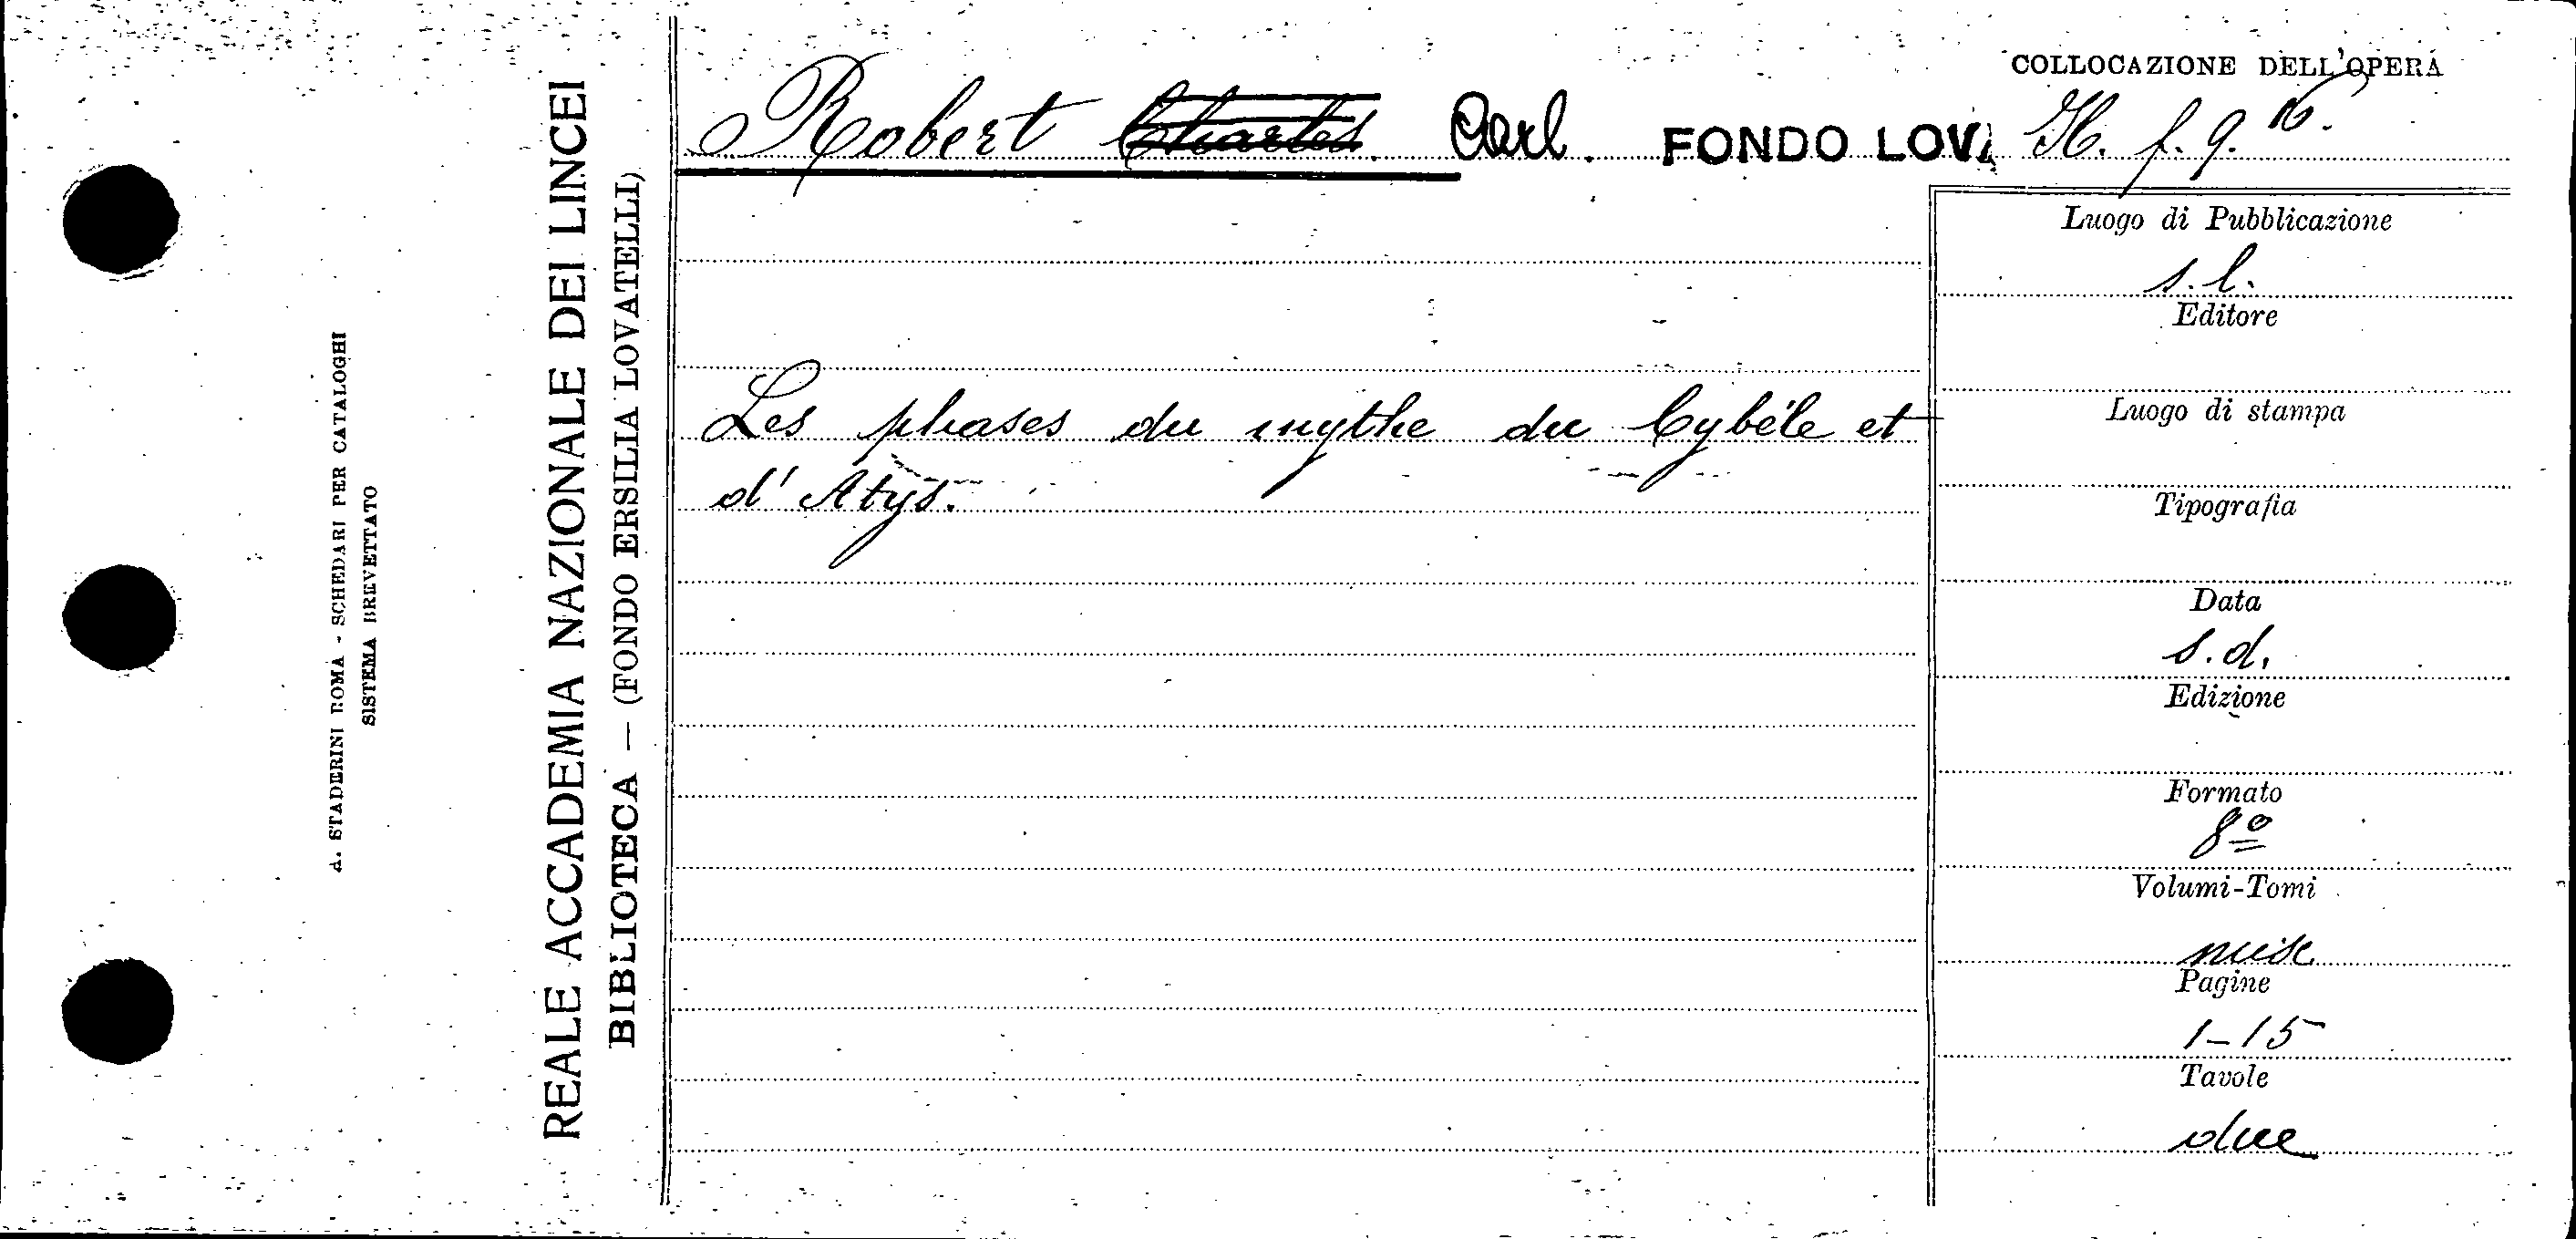 COLLOCAZIONE DELL'OPERA
Robert Charles. Carl. FONDO LOV. H. f. 9. 16.
REALE ACCADEMIA NAZIONALE DEI LINCEI
BIBLIOTECA — (FONDO ERSILIA LOVATELLI)
A. STADERINI ROMA - SCHEDARI PER CATALOGHI
SISTEMA BREVETTATO
Les phases du mythe du Cybéle et
d'Atys.
Luogo di Pubblicazione
s. l.
Editore
Luogo di stampa
Tipografia
Data
s. d.
Edizione
Formato
8º
Volumi-Tomi
Pagine
1-15
Tavole
due